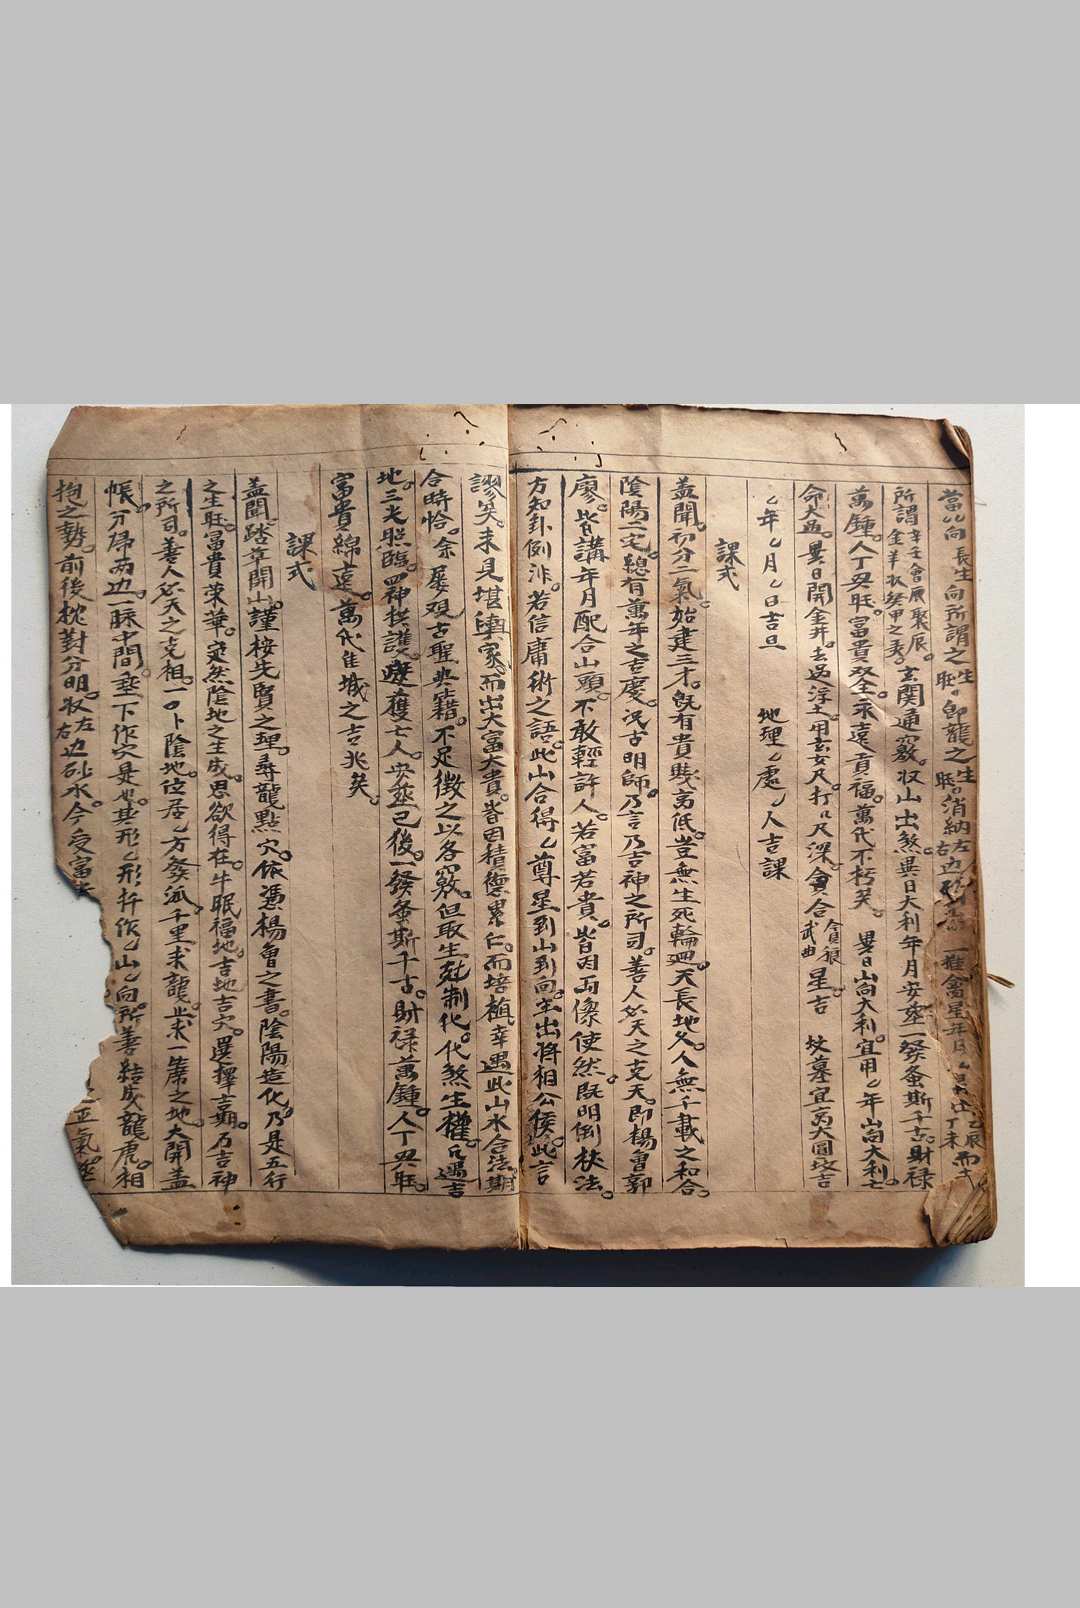 當〻向長生向所謂之生旺。即龍之生旺。消納左右边
所謂辛壬會而聚辰。金羊收癸甲之灵。玄關通竅。收山出煞異日大利年月安塟一發螽斯千古。財禄
萬鍾。人丁興旺。富貴双全。永遠貢福。萬代不朽矣。異日山向大利。宜用〻年山向大利。七
命大益。異日開金井。去過浮土。用玄女尺。打〻尺深。會合貪狼武曲星吉 坟墓宜高大圓坟吉
〻年〻月〻日吉旦 地理〻處〻人吉課
課式
盖聞。初分二氣。始建三才。既有貴賤高低。豈無生死輪廻。天長地久。人無千載之和合。
陰陽二宅。總有萬年之吉慶。况古明師。乃言乃吉神之所司。善人必天之支天。即楊曾郭
廖。皆講年月配合山頭。不敢輕許人。若富若貴。皆因而像使然。既明倒杖法。
方知卦例非。若信庸術之語。此山合得〻尊星到山到向。主出將相公侯。此言
謬矣。未見堪輿家。而出大富大貴。皆因積德累仁。而培植。幸遇此山水合法。期
合時恰。余屡观古聖典籍。不足徴之以各竅。但取生尅制化。代煞生權。凡遇吉
地。三光照臨。四神拱護。庭獲亡人。安塟已後。一發螽斯千古。財禄萬鍾。人丁興旺。
富貴綿遠。萬代佳城之吉兆矣。
課式
盖聞。踏草開山。謹按先賢之理。尋龍點穴。依憑楊曾之書。陰陽造化。乃是五行
之生旺。富貴荣華。定然陰地之生成。思欲得在。牛眠福地。吉地吉穴。選擇吉期。乃吉神
之所司。善人必天之克相。一口卜陰地。位居〻方發派。千里來龍。止求一席之地。大開盖
帳。分帰两边。一脉中間。埀下作穴是也。其形〻形扦作〻山〻向。所善結成龍虎。相
抱之勢。前後枕對分明。收左右边砂水。今受富 正氣。塟